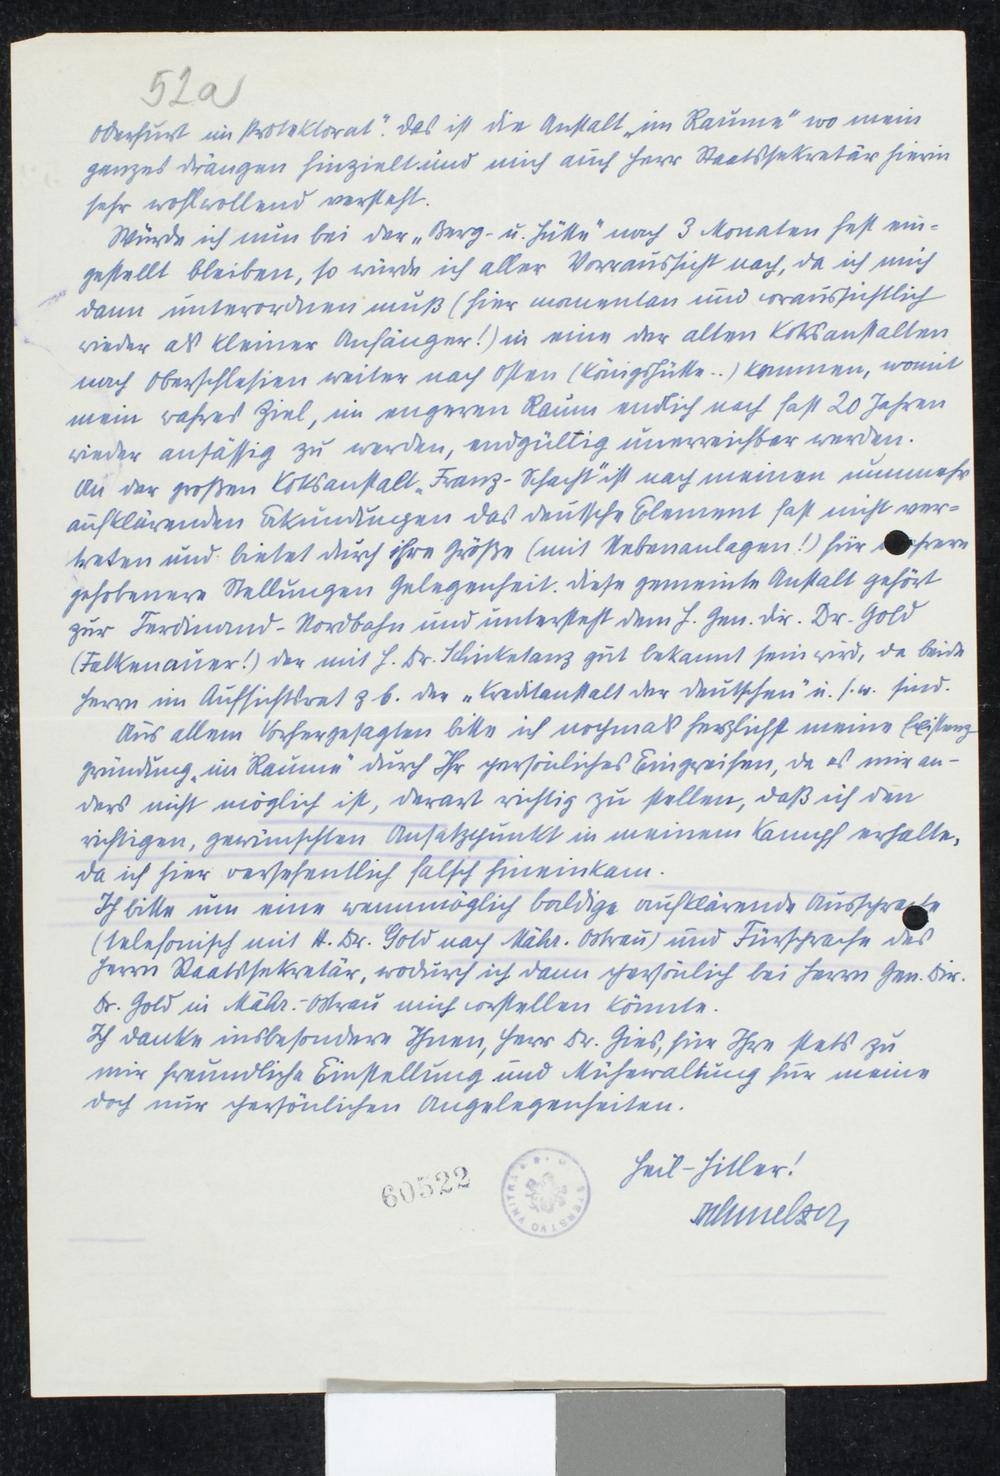 52a
Oderfurt im Protektorat". Das ist die Anstalt „im Raume" wo mein
ganzes Drängen hinzielt und mich auch Herr Staatssekretär hierin
sehr wohlwollend versteht.
Würde ich nun bei der „Berg- u. Hütte" nach 3 Monaten fest ein=
gestellt bleiben, so würde ich aller Vorraussicht nach, da ich mich
dann unterordnen muß (hier momentan und voraussichtlich
wieder als kleiner Anfänger!) in eine der alten Koksanstalten
nach Oberschlesien weiter nach Osten (Königshütte..) kommen, womit
mein wahres Ziel, im engeren Raum endlich nach fast 20 Jahren
wieder ansässig zu werden, endgültig unerreichbar werden.
An der großen Koksanstalt „Franz-Schacht" ist nach meinen nunmehr
aufklärenden Erkundungen das deutsche Element fast nicht ver=
treten und bietet durch ihre Größe (mit Nebenanlagen!) für
gehobenere Stellungen Gelegenheit. Diese gemeinte Anstalt gehört
zur Ferdinand-Nordbahn und untersteht dem H. Gen. Dir. Dr. Gold
(Falkenauer!) der mit H. Dr. Schicketanz gut bekannt sein wird, da beide
Herrn im Aufsichtsrat z b. der „Kreditanstalt der Deutschen" u. s. w. sind.
Aus allem Vorhergesagten bitte ich nochmals herzlichst meine Existenz
gründung „im Raume" durch Ihr persönliches Eingreifen, da es mir an-
ders nicht möglich ist, derart richtig zu stellen, daß ich den
richtigen, gewünschten Ansatzpunkt in meinem Kampf erhalte,
da ich hier versehentlich falsch hineinkam.
Ich bitte um eine wennmöglich baldige aufklärende Aussprache
(telefonisch mit H. Dr. Gold nach Mähr. Ostrau) und Fürsprache des
Herrn Staatssekretär, wodurch ich dann persönlich bei Herrn Gen. Dir.
Dr. Gold in Mähr.-Ostrau mich vorstellen könnte.
Ich danke insbesondere Ihnen, Herr Dr. Gies, für Ihre stets zu
mir freundliche Einstellung und Mühewaltung für meine
doch nur persönlichen Angelegenheiten.
Heil-Hitler!
Schmelzer
60522
VNITRA